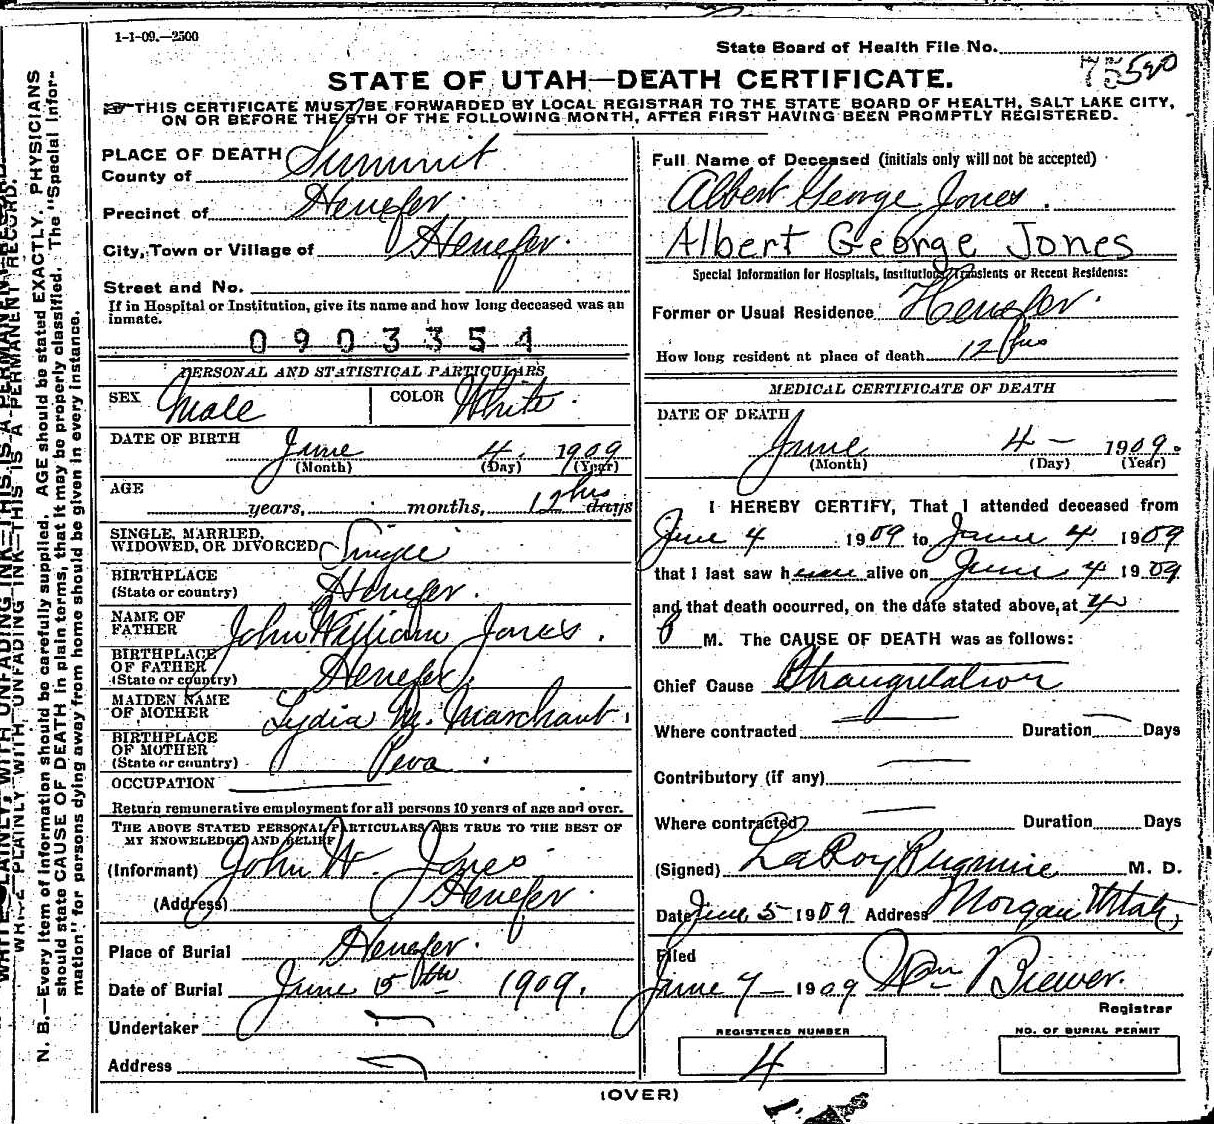 1-1-09.—2500
State Board of Health File No.
75 590
STATE OF UTAH—DEATH CERTIFICATE.
THIS CERTIFICATE MUST BE FORWARDED BY LOCAL REGISTRAR TO THE STATE BOARD OF HEALTH, SALT LAKE CITY,
ON OR BEFORE THE 5TH OF THE FOLLOWING MONTH, AFTER FIRST HAVING BEEN PROMPTLY REGISTERED.
PLACE OF DEATH
County of Summit
Precinct of Henefer.
City, Town or Village of Henefer.
Street and No.
If in Hospital or Institution, give its name and how long deceased was an
inmate.
0903351
PERSONAL AND STATISTICAL PARTICULARS
SEX Male COLOR White.
DATE OF BIRTH June 4. 1909
(Month) (Day) (Year)
AGE
years, months, 12 hrs days
SINGLE, MARRIED,
WIDOWED, OR DIVORCED Single
BIRTHPLACE
(State or country) Henefer.
NAME OF
FATHER John William Jones.
BIRTHPLACE
OF FATHER
(State or country) Henefer.
MAIDEN NAME
OF MOTHER Lydia M. Marchant.
BIRTHPLACE
OF MOTHER
(State or country) Peoa.
OCCUPATION
Return remunerative employment for all persons 10 years of age and over.
THE ABOVE STATED PERSONAL PARTICULARS ARE TRUE TO THE BEST OF
MY KNOWLEDGE AND BELIEF
(Informant) John W. Jones
(Address) Henefer
Place of Burial Henefer.
Date of Burial June 5th 1909.
Undertaker
Address
Full Name of Deceased (initials only will not be accepted)
Albert George Jones.
Albert George Jones
Special Information for Hospitals, Institutions, Transients or Recent Residents:
Former or Usual Residence Henefer.
How long resident at place of death 12 hrs
MEDICAL CERTIFICATE OF DEATH
DATE OF DEATH
June 4 — 1909.
(Month) (Day) (Year)
I HEREBY CERTIFY, That I attended deceased from
June 4 1909 to June 4 1909
that I last saw h alive on June 4 1909
and that death occurred, on the date stated above, at 4
P M. The CAUSE OF DEATH was as follows:
Chief Cause Strangulation
Where contracted — Duration — Days
Contributory (if any) —
Where contracted — Duration Days
(Signed) LaRoy Pugmire M. D.
Date June 5 1909 Address Morgan Utah,
Filed
June 7 — 1909 Wm Brewer.
Registrar
REGISTERED NUMBER
4
NO. OF BURIAL PERMIT
(OVER)
WRITE PLAINLY, WITH UNFADING INK—THIS IS A PERMANENT RECORD.
N. B.—Every item of information should be carefully supplied. AGE should be stated EXACTLY. PHYSICIANS
should state CAUSE OF DEATH in plain terms, that it may be properly classified. The "Special Infor-
mation" for persons dying away from home should be given in every instance.